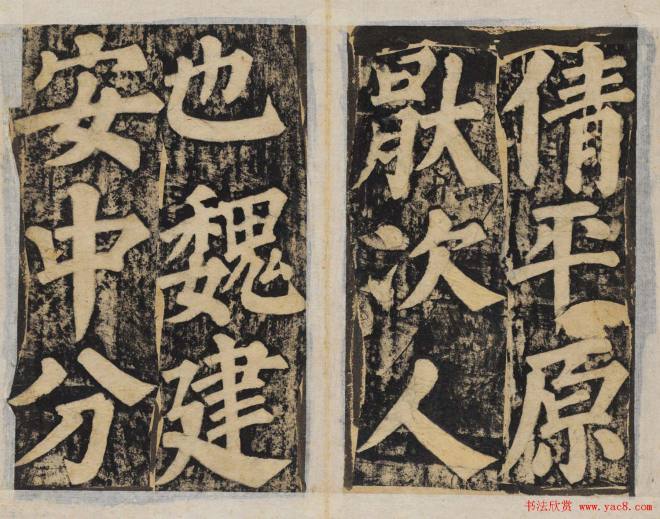 倩平原
厭次人
也魏建
安中分
书法欣赏 www.yac8.com